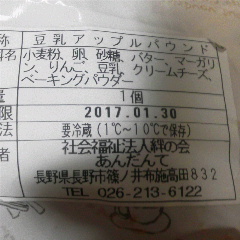 称 豆乳アップルパウンド
料名 小麦粉、卵、砂糖、バター、マーガリ
ン、りんご、豆乳、クリームチーズ、
ベーキングパウダー
量 1個
限 2017.01.30
法 要冷蔵(1℃~10℃で保存)
者 社会福祉法人絆の会
あんだんて
長野県長野市篠ノ井布施高田832
TEL 026-213-6122